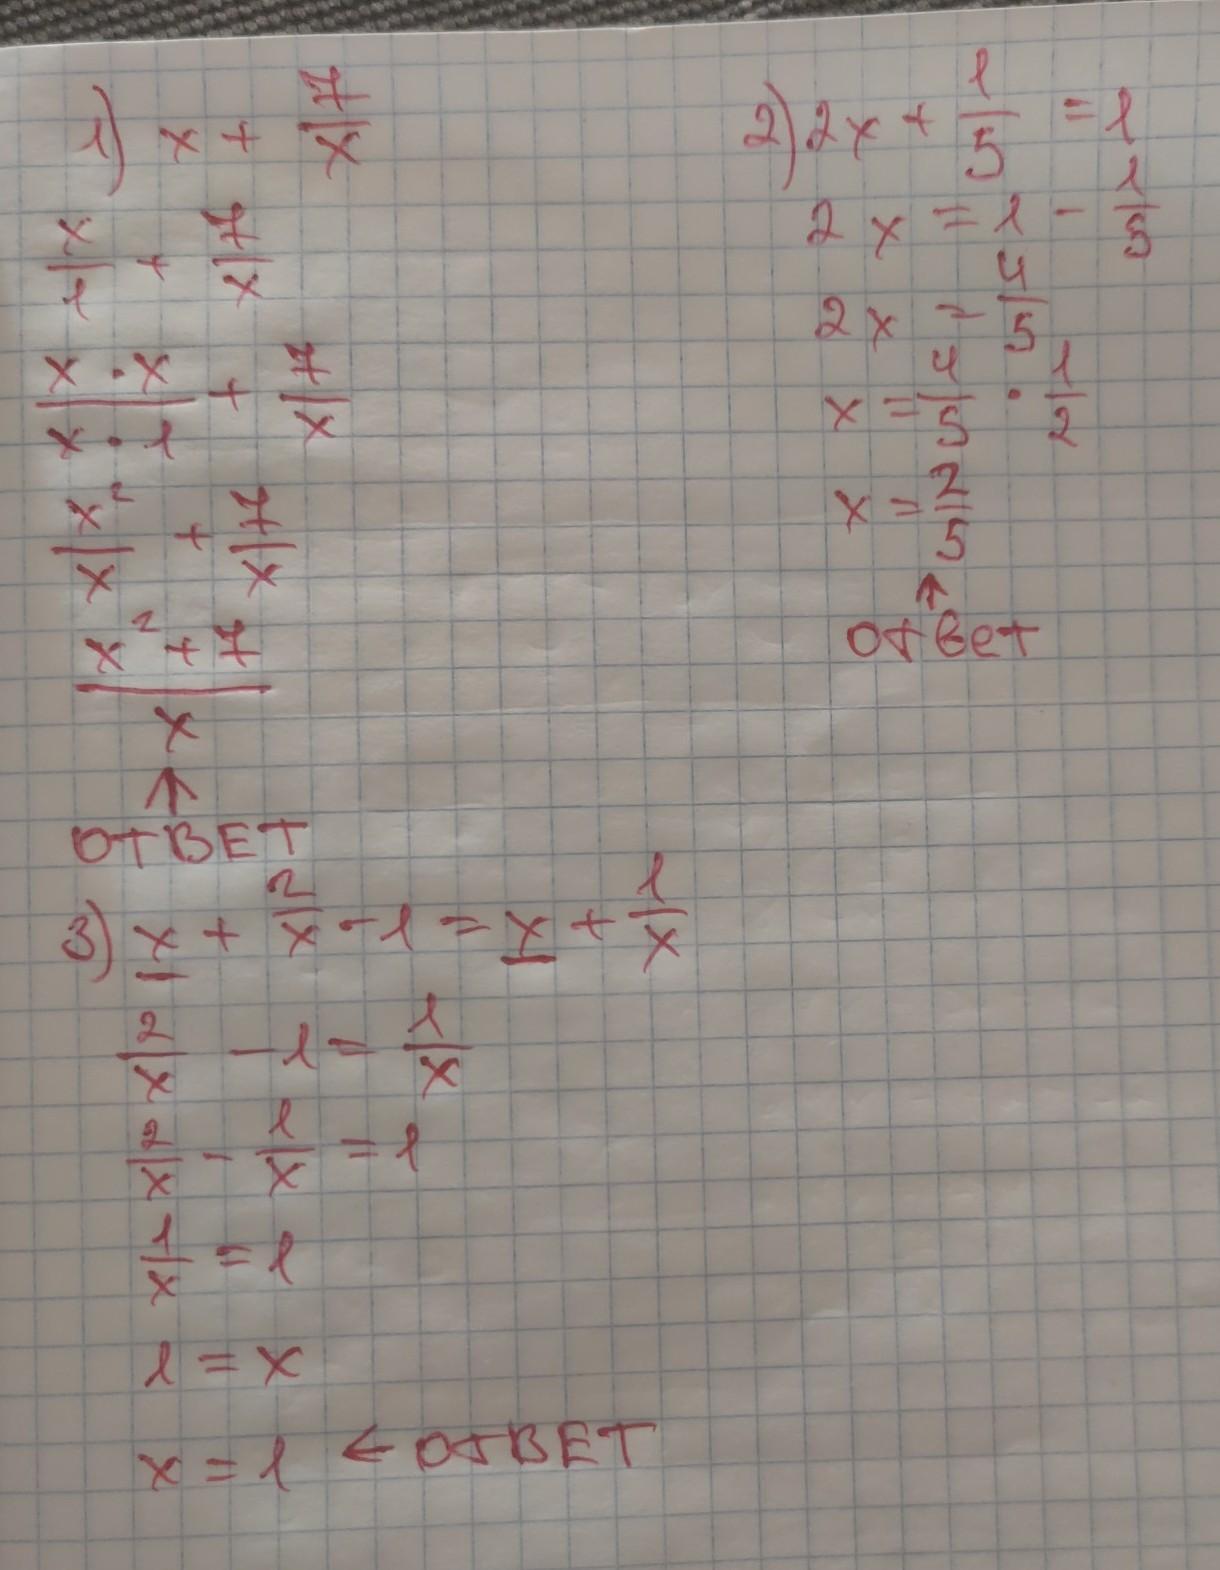 1) x + 7/x
x/1 + 7/x
x · x / x · 1 + 7/x
x²/x + 7/x
x² + 7 / x
↑
ОТВЕТ
2) 2x + 1/5 = 1
2x = 1 - 1/5
2x = 4/5
x = 4/5 · 1/2
x = 2/5
↑
ОтВет
3) x + 2/x - 1 = x + 1/x
2/x - 1 = 1/x
2/x - 1/x = 1
1/x = 1
1 = x
x = 1 ← ОТВЕТ